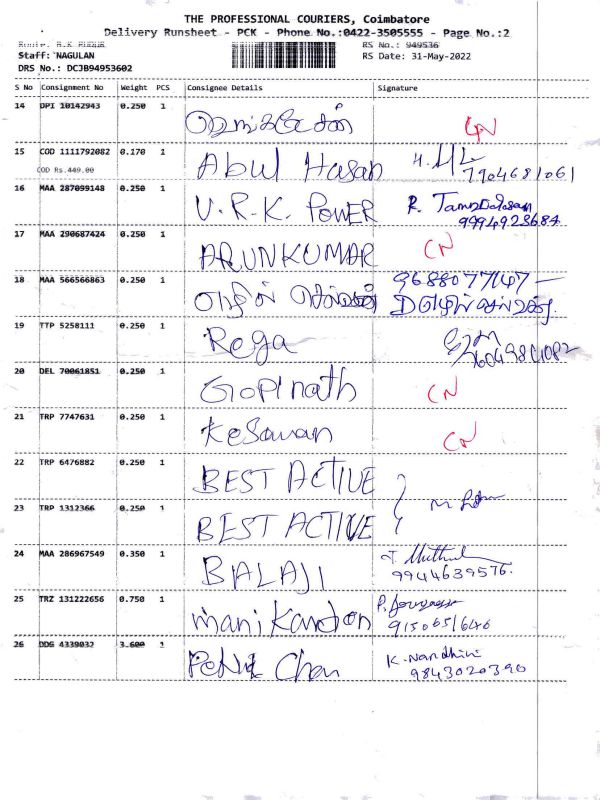 THE PROFESSIONAL COURIERS, Coimbatore
Delivery Runsheet - PCK - Phone No.:0422-3505555 - Page No.:2
RS No.: 949536
Staff: NAGULAN
RS Date: 31-May-2022
DRS No.: DCJB94953602
S No Consignment No Weight PCS Consignee Details Signature
14 DPI 10142943 0.250 1 CN
15 COD 1111792082 0.170 1 Abul Hasan
COD Rs.449.00 7904681061
16 MAA 287099148 0.250 1 V.R.K. POWER
9994923684
17 MAA 290687424 0.250 1 ARUNKUMAR CN
18 MAA 566566863 0.250 1 எழில்
19 TTP 5258111 0.250 1 Rega
20 DEL 70061851 0.250 1 Gopinath CN
21 TRP 7747631 0.250 1 Kesavan CN
22 TRP 6476882 0.250 1 BEST ACTIVE
23 TRP 1312366 0.250 1 BEST ACTIVE
24 MAA 286967549 0.350 1 BALAJI
9944639576.
25 TRZ 131222656 0.750 1 Manikandon
9150651646
26 DDG 4339032 3.600 1 K. Nandhini
9843020390